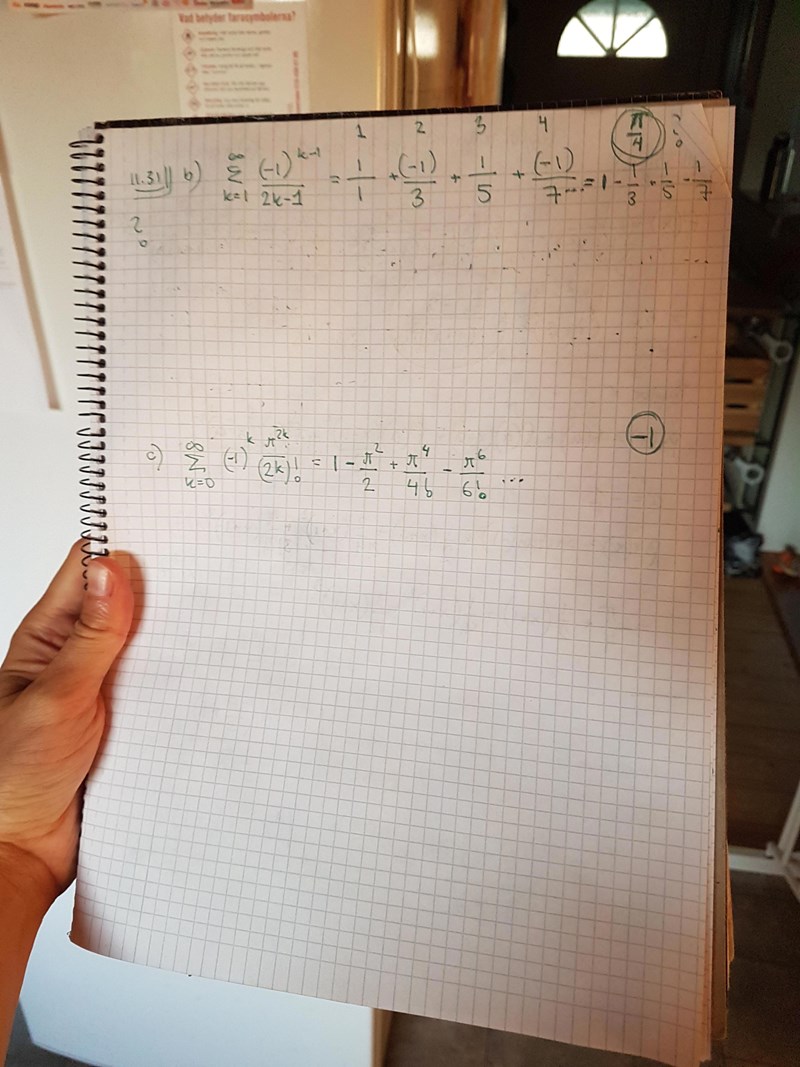 Vad betyder farosymbolerna?
1 2 3 4 π/4 ?
11.31 b) ∞ Σ k=1 (-1)^k-1 / 2k-1 = 1/1 + (-1)/3 + 1/5 + (-1)/7 ... = 1 - 1/3 + 1/5 - 1/7
?
-1
c) ∞ Σ k=0 (-1)^k π^2k / (2k)! = 1 - π^2/2 + π^4/4! - π^6/6! ...